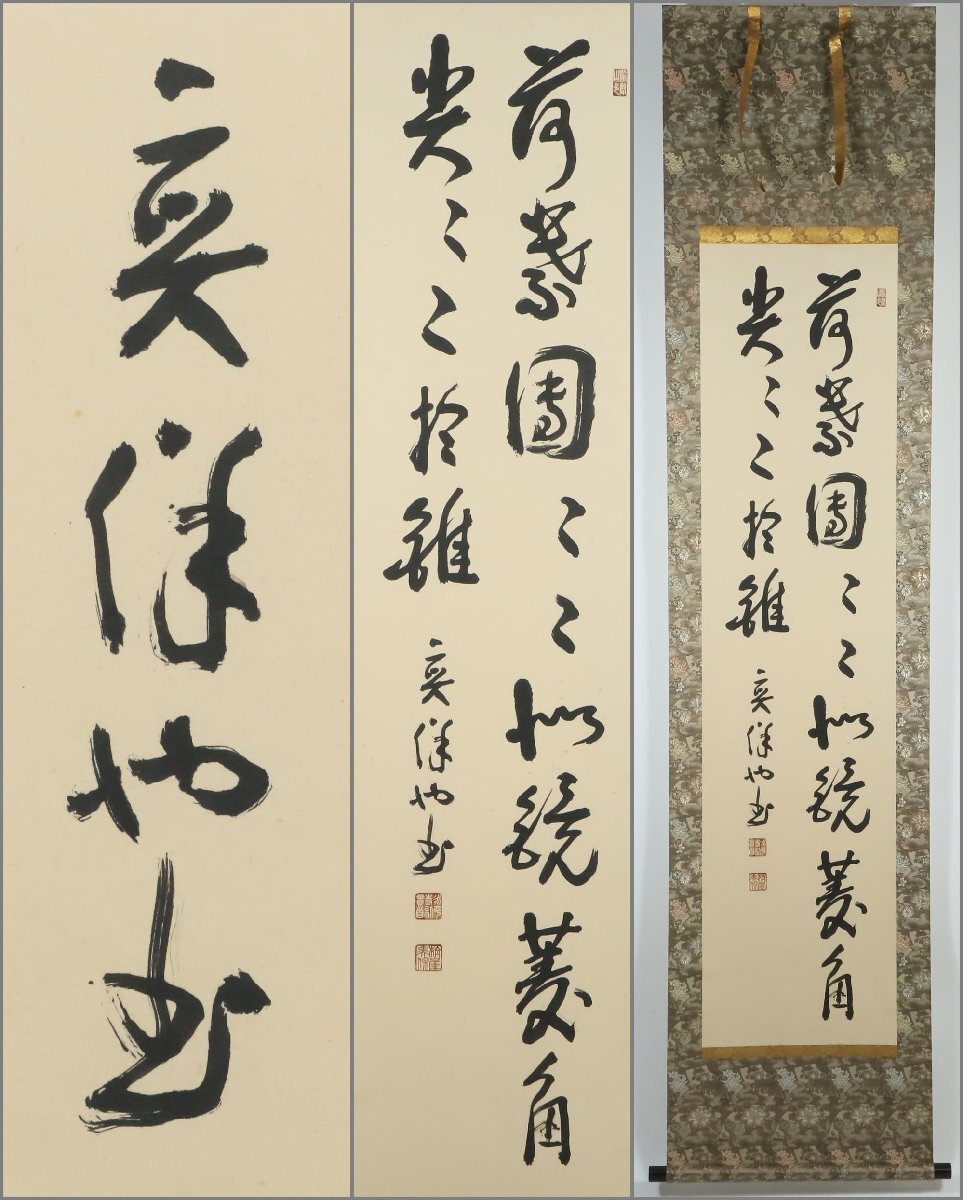 奕保書
荷葉團〻〻似鏡菱角
尖〻〻於錐
奕保書
荷葉團〻〻似鏡菱角
尖〻〻於錐
奕保書